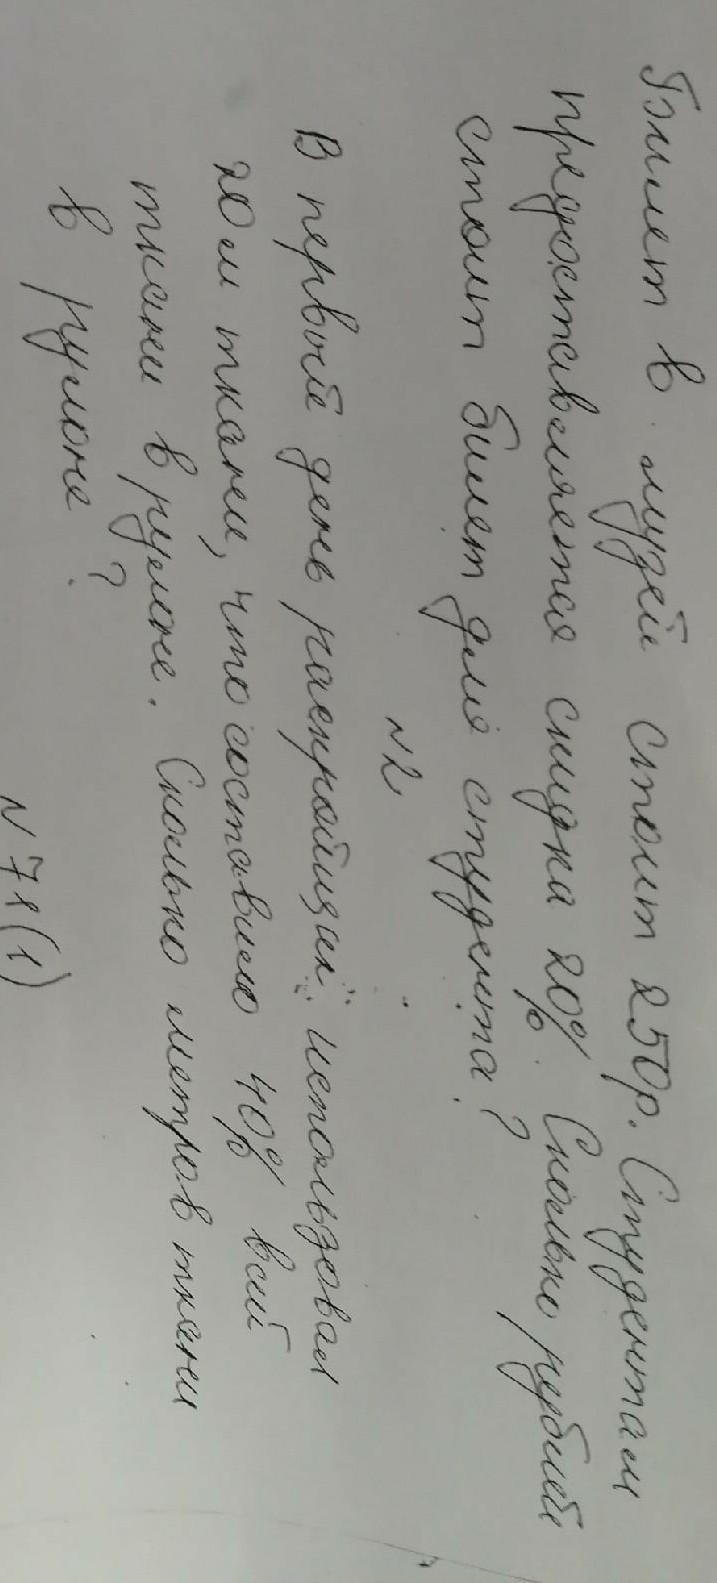 Билет в музей стоит 250р. Студентам
предоставляется скидка 20%. Сколько рублей
стоит билет для студента?
N2
В первый день раскройщик использовал
20 м ткани, что составило 40% всей
ткани в рулоне. Сколько метров ткани
в рулоне?
N 71(1)